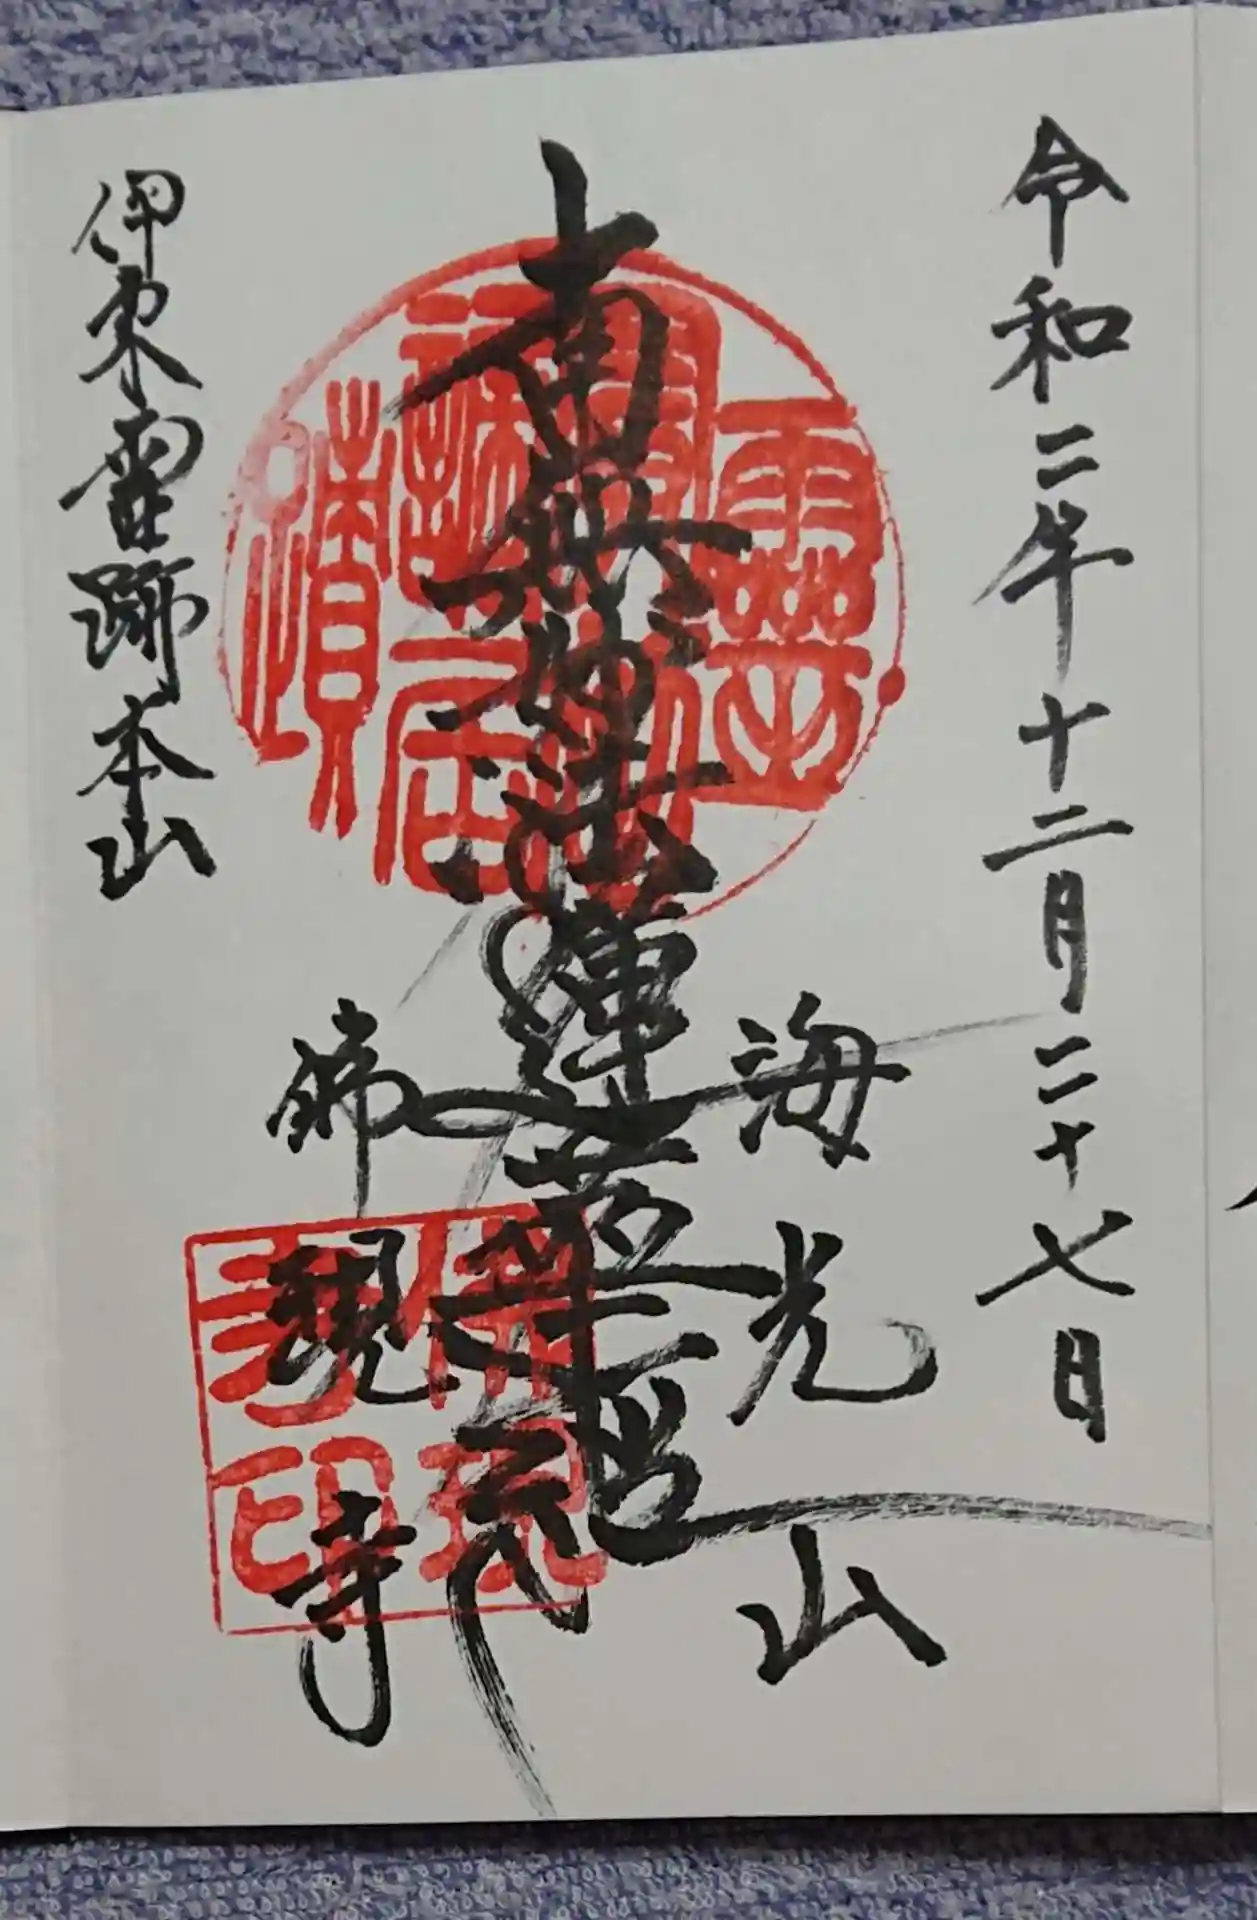 令和二年十二月二十七日
海光山
南無妙法蓮華経
佛現寺
伊東霊跡本山
佛現寺印